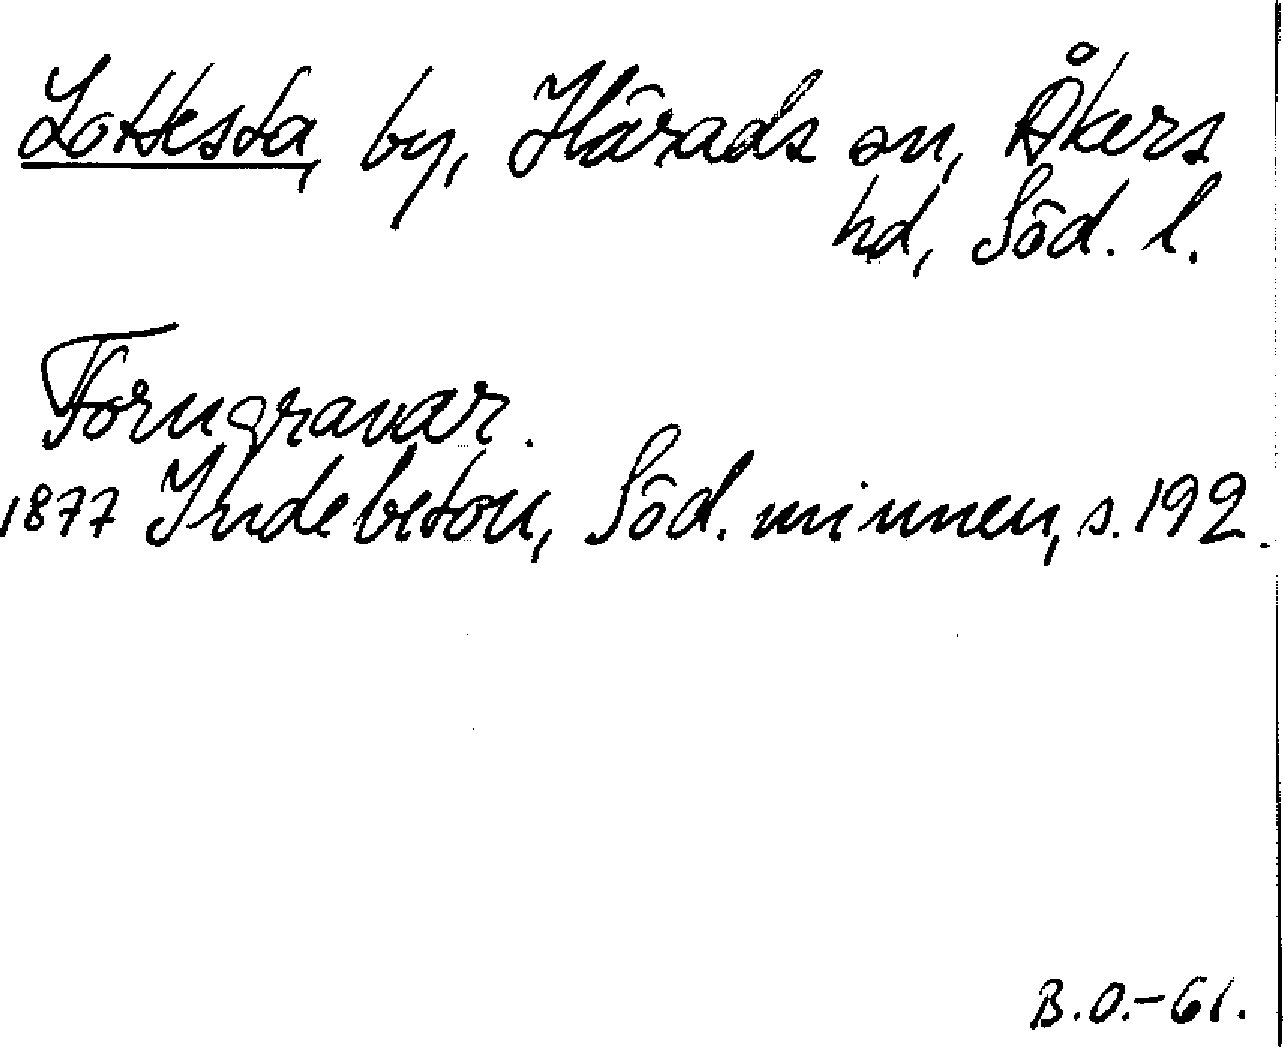 Lottesta, by, Härads sn, Åkers
hd, Söd. l.
Forngravar.
1877 Indebetou, Söd. minnen, s. 192.
B.O.-61.